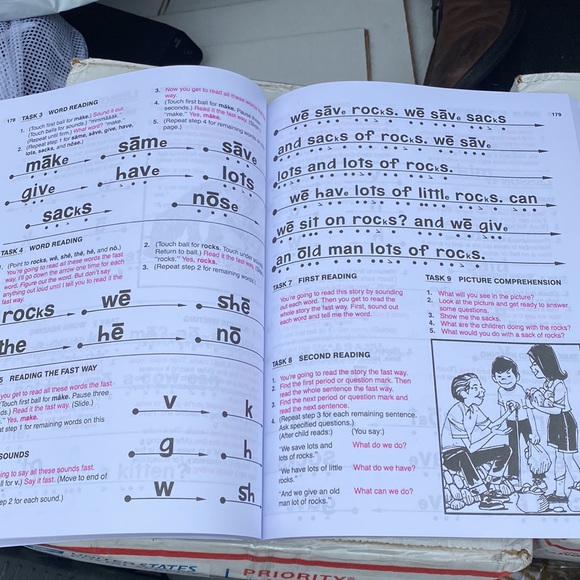 178 TASK 3 WORD READING
1. (Touch first ball for māke.) Sound it out.
(Touch balls for sounds.) "mmmāāāk."
(Repeat until firm.) What word? "make."
2. (Repeat step 1 for sāme, sāve, give, have,
lots, sacks, and nōse.)
3. Now you get to read all these words the fast
way.
4. (Touch first ball for māke. Pause three
seconds.) Read it the fast way. (Slide.)
"make." Yes, make.
5. (Repeat step 4 for remaining words on this
page.)
māke sāme sāve
give have lots
sacks nōse
TASK 4 WORD READING
1. (Point to rocks, wē, shē, thē, hē, and nō.)
You're going to read all these words the fast
way. I'll go down the arrow one time for each
word. Figure out the word. But don't say
anything out loud until I tell you to read it the
fast way.
2. (Touch ball for rocks. Touch under
Return to ball.) Read it the fast way.
"rocks." Yes, rocks.
3. (Repeat step 2 for remaining words.)
rocks wē shē
the hē nō
5 READING THE FAST WAY
you get to read all these words the fast
(Touch first ball for māke. Pause three
ds.) Read it the fast way. (Slide.)
" Yes, make.
at step 1 for remaining words on this
v k
g h
w sh
SOUNDS
ing to say all these sounds fast.
ll for v.) Say it fast. (Move to end of
ep 2 for each sound.)
179
wē sāve rocks. wē sāve sacks
and sacks of rocks. wē sāve
lots and lots of rocks.
wē have lots of little rocks. can
wē sit on rocks? and wē give
an ōld man lots of rocks.
TASK 7 FIRST READING
You're going to read this story by sounding
out each word. Then you get to read the
whole story the fast way. First, sound out
each word and tell me the word.
TASK 8 SECOND READING
1. You're going to read the story the fast way.
2. Find the first period or question mark. Then
read the whole sentence the fast way.
3. Find the next period or question mark and
read the next sentence.
4. (Repeat step 3 for each remaining sentence.
Ask specified questions.)
(After child reads:) (You say:)
"We save lots and What do we do?
lots of rocks."
"We have lots of little What do we have?
rocks."
"And we give an old What can we do?
man lot of rocks."
TASK 9 PICTURE COMPREHENSION
1. What will you see in the picture?
2. Look at the picture and get ready to answer
some questions.
3. Show me the sacks.
4. What are the children doing with the rocks?
5. What would you do with a sack of rocks?
UNITED STATES
PRIORITY